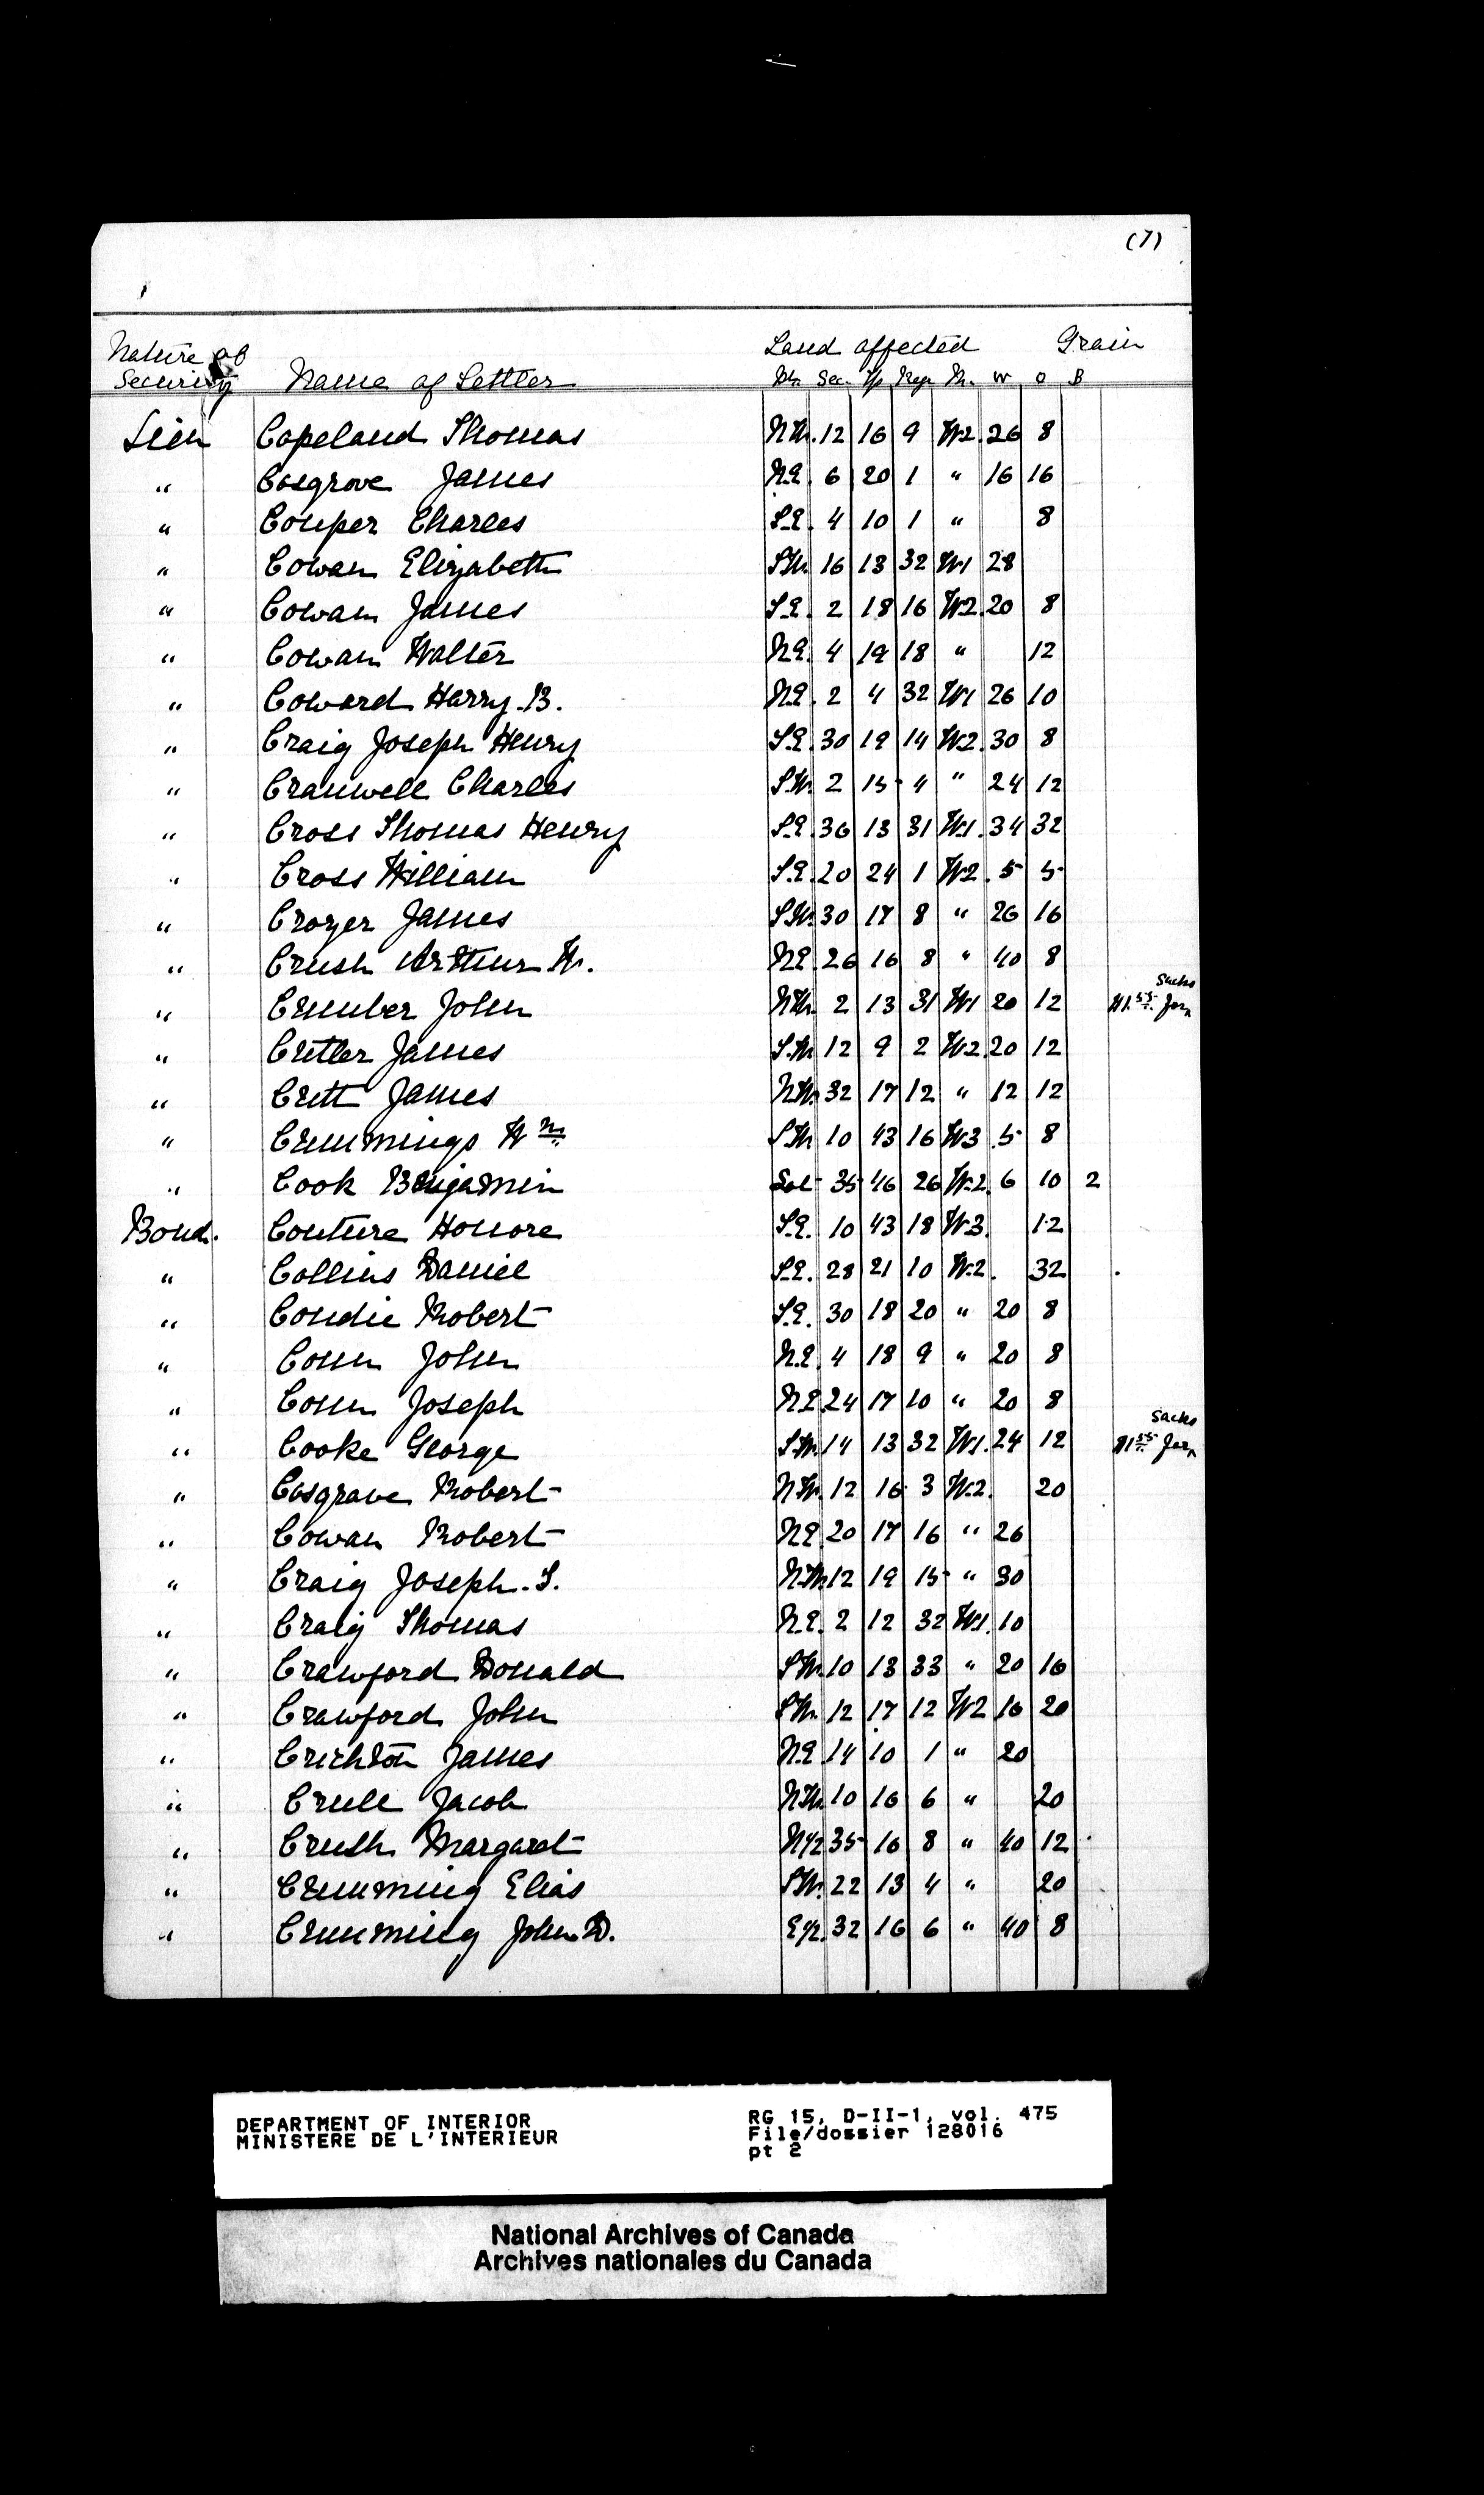 (7)
Land affected Grain
Nature of
Security Name of Settler Pt. Sec. Tp Rge M. W O B
Lien Copeland Thomas N.W. 12 16 9 W2. 26 8
" Cosgrove James N.E. 6 20 1 " 16 16
" Couper Charles S.E. 4 10 1 " 8
" Cowan Elizabeth S.W. 16 13 32 W1 28
" Cowan James S.E. 2 18 16 W2. 20 8
" Cowan Walter N.E. 4 19 18 " 12
" Coward Harry. B. N.E. 2 4 32 W1 26 10
" Craig Joseph Henry S.E. 30 19 14 W2. 30 8
" Cranwell Charles S.W. 2 15 4 " 24 12
" Cross Thomas Henry S.E. 36 13 31 W1. 34 32
" Cross William S.E. 20 24 1 W2. 5 5
" Crozer James S.W. 30 17 8 " 26 16
" Crush Arthur W. N.E. 26 16 8 " 40 8
Sacks
" Cumber John N.W. 2 13 31 W1 20 12 $1.55 for
" Cutler James S.W. 12 9 2 W2. 20 12
" Cutt James N.W. 32 17 12 " 12 12
" Cummings Wm S.W. 10 43 16 W3 .5 8
" Cook Benjamin 35 46 26 W.2. 6 10 2
Bond. Couture Honore S.E. 10 43 18 W3. 12
" Collins Daniel S.E. 28 21 10 W.2. 32
" Condie Robert S.E. 30 18 20 " 20 8
" Conn John N.E. 4 18 9 " 20 8
" Conn Joseph N.E. 24 17 10 " 20 8
Sacks
" Cooke George S.W. 14 13 32 W1. 24 12 $1.55 for
" Cosgrave Robert N.W. 12 16 3 W.2. 20
" Cowan Robert N.E. 20 17 16 " 26
" Craig Joseph. S. N.W. 12 19 15 " 30
" Craig Thomas N.E. 2 12 32 W1. 10
" Crawford Donald S.W. 10 13 33 " 20 16
" Crawford John S.W. 12 17 12 W2 16 20
" Crichton James N.E. 14 10 1 " 20
" Crull Jacob N.W. 10 16 6 " 20
" Crush Margaret N1/2 35 16 8 " 40 12
" Cumming Elias S.W. 22 13 4 " 20
" Cumming John D. E1/2. 32 16 6 " 40 8
DEPARTMENT OF INTERIOR
MINISTERE DE L'INTERIEUR
RG 15, D-II-1, vol. 475
File/dossier 128016
pt 2
National Archives of Canada
Archives nationales du Canada